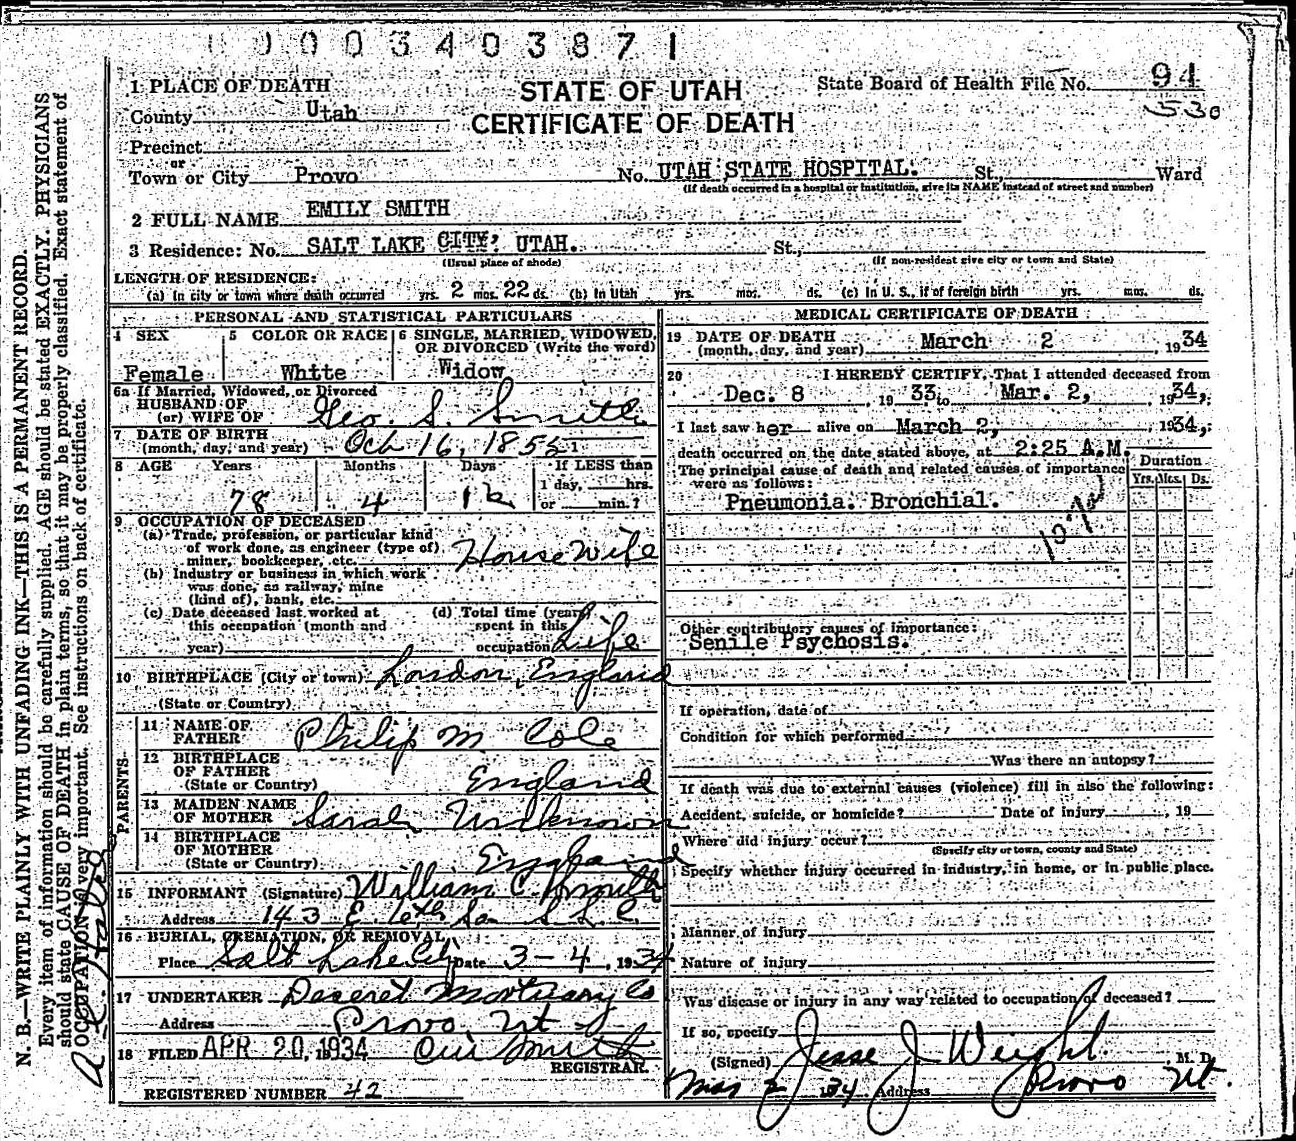 0 0 0 0 3 4 0 3 8 7 1
N. B.—WRITE PLAINLY WITH UNFADING INK—THIS IS A PERMANENT RECORD.
Every item of information should be carefully supplied. AGE should be stated EXACTLY. PHYSICIANS
should state CAUSE OF DEATH in plain terms, so that it may be properly classified. Exact statement of
OCCUPATION is very important. See instructions on back of certificate.
STATE OF UTAH
CERTIFICATE OF DEATH
State Board of Health File No. 94
530
1 PLACE OF DEATH
County Utah
Precinct
or
Town or City Provo No. UTAH STATE HOSPITAL. St., Ward
(If death occurred in a hospital or institution, give its NAME instead of street and number)
2 FULL NAME EMILY SMITH
3 Residence: No. SALT LAKE CITY, UTAH. St.,
(Usual place of abode) (If non-resident give city or town and State)
LENGTH OF RESIDENCE:
(a) In city or town where death occurred yrs. 2 mos. 22 ds. (b) In Utah yrs. mos. ds. (c) In U. S., if of foreign birth yrs. mos. ds.
PERSONAL AND STATISTICAL PARTICULARS
4 SEX Female
5 COLOR OR RACE White
6 SINGLE, MARRIED, WIDOWED,
OR DIVORCED (Write the word)
Widow
6a If Married, Widowed, or Divorced
HUSBAND OF
(or) WIFE OF Geo. S. Smith
7 DATE OF BIRTH
(month, day, and year) Oct 16, 1855
8 AGE Years Months Days If LESS than
1 day, hrs.
or min.?
78 4 12
9 OCCUPATION OF DECEASED
(a) Trade, profession, or particular kind
of work done, as engineer (type of)
miner, bookkeeper, etc. House Wife
(b) Industry or business in which work
was done, as railway, mine
(kind of), bank, etc.
(c) Date deceased last worked at
this occupation (month and
year)
(d) Total time (years)
spent in this
occupation Life
10 BIRTHPLACE (City or town) London, England
(State or Country)
PARENTS
11 NAME OF
FATHER Philip M Cole
12 BIRTHPLACE
OF FATHER
(State or Country) England
13 MAIDEN NAME
OF MOTHER Sarah Unknown
14 BIRTHPLACE
OF MOTHER
(State or Country) England
15 INFORMANT (Signature) William C. Smith
Address 143 E. 6th So. S L C.
16 BURIAL, CREMATION, OR REMOVAL
Place Salt Lake City Date 3-4, 1934
17 UNDERTAKER Deseret Mortuary Co
Address Provo, Ut
18 FILED APR 20, 1934
REGISTRAR.
REGISTERED NUMBER 42
MEDICAL CERTIFICATE OF DEATH
19 DATE OF DEATH
(month, day, and year) March 2, 1934
20 I HEREBY CERTIFY, That I attended deceased from
Dec. 8, 1933, to Mar. 2, 1934,
I last saw her alive on March 2, 1934,
death occurred on the date stated above, at 2:25 A.M.
The principal cause of death and related causes of importance
were as follows:
Duration
Yrs. Mos. Ds.
Pneumonia. Bronchial.
Other contributory causes of importance:
Senile Psychosis.
If operation, date of
Condition for which performed
Was there an autopsy?
If death was due to external causes (violence) fill in also the following:
Accident, suicide, or homicide? Date of injury , 19
Where did injury occur?
(Specify city or town, county and State)
Specify whether injury occurred in industry, in home, or in public place.
Manner of injury
Nature of injury
Was disease or injury in any way related to occupation of deceased?
If so, specify
(Signed) Jesse J Weight, M. D.
Mar 2 1934 Address Provo Ut.